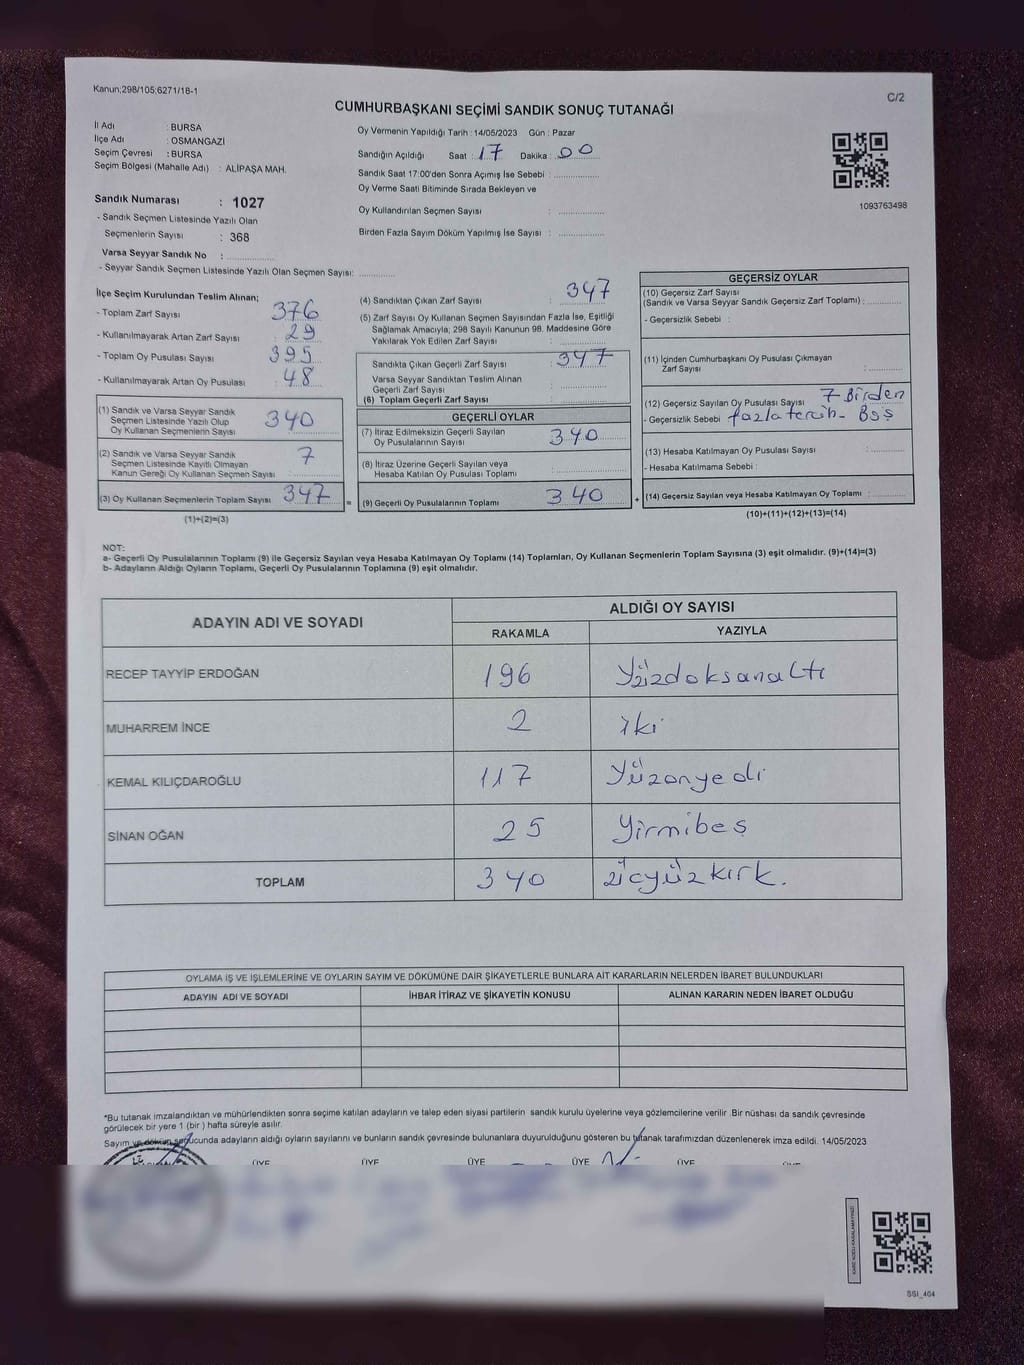 Kanun;298/105;6271/18-1
C/2
CUMHURBAŞKANI SEÇİMİ SANDIK SONUÇ TUTANAĞI
İl Adı : BURSA
İlçe Adı : OSMANGAZİ
Seçim Çevresi : BURSA
Seçim Bölgesi (Mahalle Adı) : ALİPAŞA MAH.
Oy Vermenin Yapıldığı Tarih : 14/05/2023 Gün : Pazar
Sandığın Açıldığı Saat : 17 Dakika : 00
Sandık Saat 17:00'den Sonra Açımış İse Sebebi :
Oy Verme Saati Bitiminde Sırada Bekleyen ve
Oy Kullandırılan Seçmen Sayısı :
Birden Fazla Sayım Döküm Yapılmış İse Sayısı :
1093763498
Sandık Numarası : 1027
- Sandık Seçmen Listesinde Yazılı Olan
Seçmenlerin Sayısı : 368
Varsa Seyyar Sandık No :
- Seyyar Sandık Seçmen Listesinde Yazılı Olan Seçmen Sayısı:
İlçe Seçim Kurulundan Teslim Alınan;
- Toplam Zarf Sayısı 376
- Kullanılmayarak Artan Zarf Sayısı : 29
- Toplam Oy Pusulası Sayısı 395
- Kullanılmayarak Artan Oy Pusulası : 48
(1) Sandık ve Varsa Seyyar Sandık
Seçmen Listesinde Yazılı Olup
Oy Kullanan Seçmenlerin Sayısı 340
(2) Sandık ve Varsa Seyyar Sandık
Seçmen Listesinde Kayıtlı Olmayan
Kanun Gereği Oy Kullanan Seçmen Sayısı 7
(3) Oy Kullanan Seçmenlerin Toplam Sayısı 347 =
(1)+(2)=(3)
(4) Sandıktan Çıkan Zarf Sayısı : 347
(5) Zarf Sayısı Oy Kullanan Seçmen Sayısından Fazla İse, Eşitliği
Sağlamak Amacıyla; 298 Sayılı Kanunun 98. Maddesine Göre
Yakılarak Yok Edilen Zarf Sayısı :
Sandıkta Çıkan Geçerli Zarf Sayısı : 347
Varsa Seyyar Sandıktan Teslim Alınan
Geçerli Zarf Sayısı :
(6) Toplam Geçerli Zarf Sayısı
GEÇERLİ OYLAR
(7) İtiraz Edilmeksizin Geçerli Sayılan
Oy Pusulalarının Sayısı 340
(8) İtiraz Üzerine Geçerli Sayılan veya
Hesaba Katılan Oy Pusulası Toplamı
(9) Geçerli Oy Pusulalarının Toplamı 340 +
GEÇERSİZ OYLAR
(10) Geçersiz Zarf Sayısı
(Sandık ve Varsa Seyyar Sandık Geçersiz Zarf Toplamı) :
- Geçersizlik Sebebi :
(11) İçinden Cumhurbaşkanı Oy Pusulası Çıkmayan
Zarf Sayısı :
(12) Geçersiz Sayılan Oy Pusulası Sayısı 7 Birden
- Geçersizlik Sebebi fazla tercih- Boş
(13) Hesaba Katılmayan Oy Pusulası Sayısı :
- Hesaba Katılmama Sebebi :
(14) Geçersiz Sayılan veya Hesaba Katılmayan Oy Toplamı :
(10)+(11)+(12)+(13)=(14)
NOT:
a- Geçerli Oy Pusulalarının Toplamı (9) ile Geçersiz Sayılan veya Hesaba Katılmayan Oy Toplamı (14) Toplamları, Oy Kullanan Seçmenlerin Toplam Sayısına (3) eşit olmalıdır. (9)+(14)=(3)
b- Adayların Aldığı Oyların Toplamı, Geçerli Oy Pusulalarının Toplamına (9) eşit olmalıdır.
ADAYIN ADI VE SOYADI
ALDIĞI OY SAYISI
RAKAMLA YAZIYLA
RECEP TAYYİP ERDOĞAN 196 Yüzdoksanaltı
MUHARREM İNCE 2 iki
KEMAL KILIÇDAROĞLU 117 Yüzonyedi
SİNAN OĞAN 25 Yirmibeş
TOPLAM 340 üçyüzkırk.
OYLAMA İŞ VE İŞLEMLERİNE VE OYLARIN SAYIM VE DÖKÜMÜNE DAİR ŞİKAYETLERLE BUNLARA AİT KARARLARIN NELERDEN İBARET BULUNDUKLARI
ADAYIN ADI VE SOYADI İHBAR İTİRAZ VE ŞİKAYETİN KONUSU ALINAN KARARIN NEDEN İBARET OLDUĞU
*Bu tutanak imzalandıktan ve mühürlendikten sonra seçime katılan adayların ve talep eden siyasi partilerin sandık kurulu üyelerine veya gözlemcilerine verilir .Bir nüshası da sandık çevresinde
görülecek bir yere 1 (bir ) hafta süreyle asılır.
Sayım ve döküm sonucunda adayların aldığı oyların sayılarını ve bunların sandık çevresinde bulunanlara duyurulduğunu gösteren bu tutanak tarafımızdan düzenlenerek imza edildi. 14/05/2023
ÜYE ÜYE ÜYE ÜYE ÜYE
SSI_404